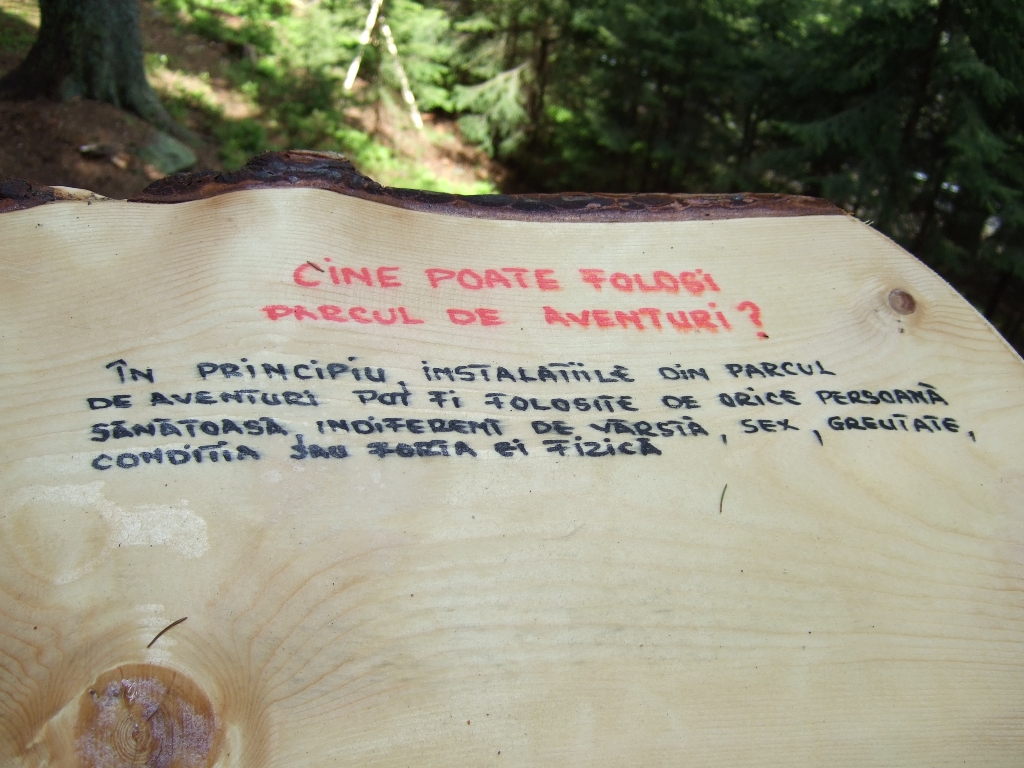 CINE POATE FOLOSI
PARCUL DE AVENTURI?
ÎN PRINCIPIU, INSTALATIILE DIN PARCUL
DE AVENTURI POT FI FOLOSITE DE ORICE PERSOANĂ
SĂNĂTOASĂ, INDIFERENT DE VÂRSTA, SEX, GREUTATE,
CONDITIA SAU FORTA EI FIZICĂ